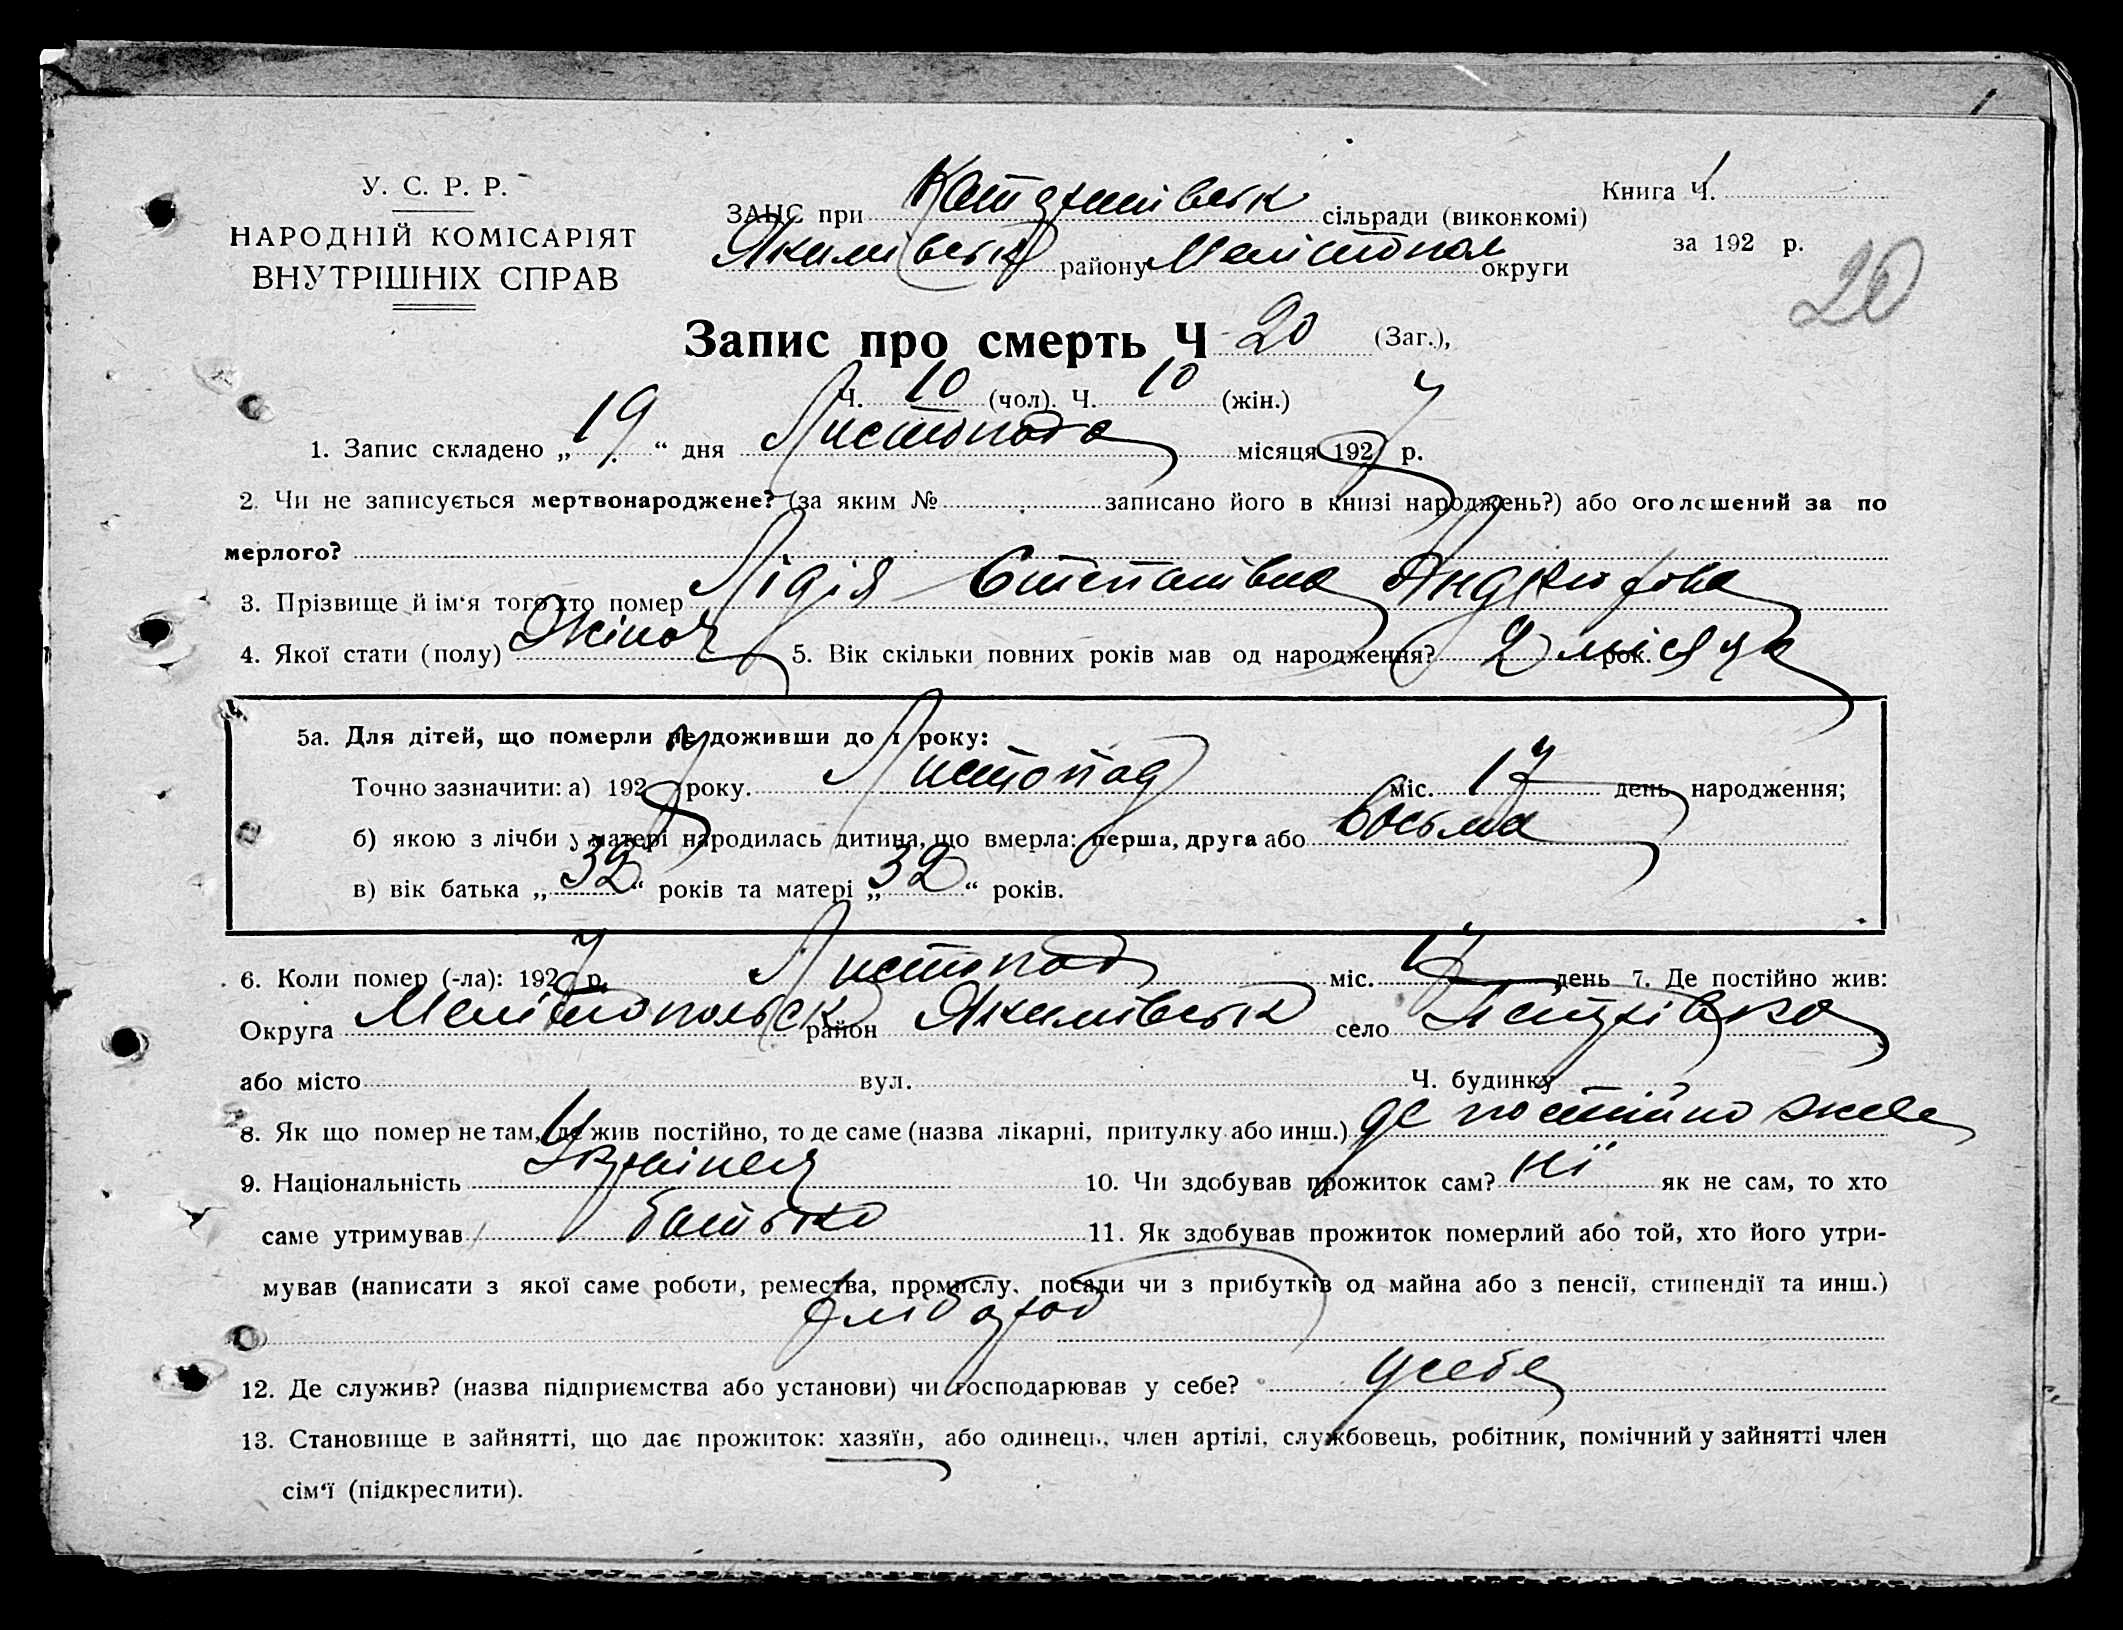 У. С. Р. Р.
НАРОДНІЙ КОМІСАРІЯТ
ВНУТРІШНІХ СПРАВ
ЗАПС при сільради (виконкомі)
Якимівськ району Мелітопол округи
Книга Ч. 1
за 192 р.
20
Запис про смерть Ч 20 (Заг.),
Ч. 10 (чол). Ч. 10 (жін.)
1. Запис складено „ 19 “ дня Листопада місяця 1927 р.
2. Чи не записується мертвонароджене? (за яким № записано його в книзі народжень?) або оголошений за по
мерлого?
3. Прізвище й ім‘я того хто помер Лідія Степанівна
4. Якої стати (полу) Жіноч 5. Вік скільки повних років мав од народження? 2 місяца рок.
5а. Для дітей, що померли не доживши до 1 року:
Точно зазначити: а) 1927 року. Листопад міс. 17 день народження;
б) якою з лічби у матері народилась дитина, що вмерла: перша, друга або восьма
в) вік батька „ 32 “ років та матері „ 32 “ років.
6. Коли помер (-ла): 1927 р. Листопад міс. 17 день 7. Де постійно жив:
Округа Мелітопольськ район Якимівськ село
або місто вул. Ч. будинку
8. Як що помер не там, де жив постійно, то де саме (назва лікарні, притулку або инш.) де постійно живе
9. Національність 10. Чи здобував прожиток сам? ні як не сам, то хто
саме утримував батько 11. Як здобував прожиток померлий або той, хто його утри-
мував (написати з якої саме роботи, ремества, промислу, посади чи з прибутків од майна або з пенсії, стипендії та инш.)
хлібороб
12. Де служив? (назва підприємства або установи) чи господарював у себе? у себе
13. Становище в зайнятті, що дає прожиток: хазяїн, або одинець, член артілі, службовець, робітник, помічний у зайнятті член
сім‘ї (підкреслити).